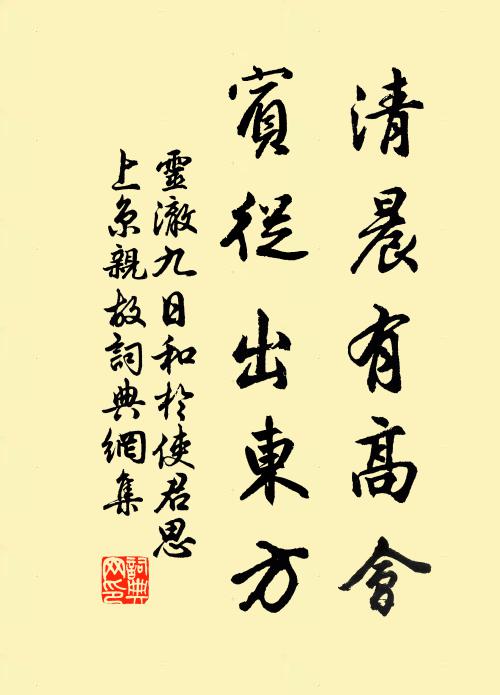 清晨有高會
賓從出東方
靈澈九日和於使君思
上京親故詞典網集
詞典
网印